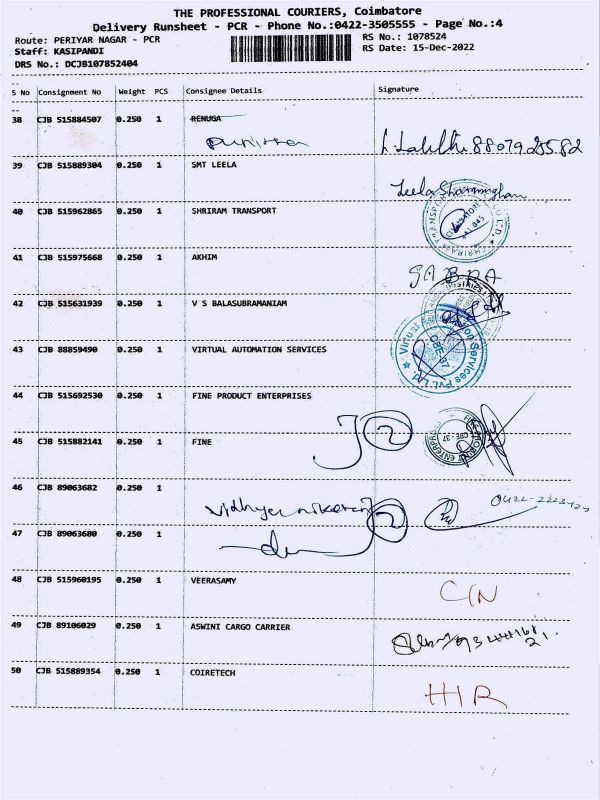 THE PROFESSIONAL COURIERS, Coimbatore
Delivery Runsheet - PCR - Phone No.:0422-3505555 - Page No.:4
Route: PERIYAR NAGAR - PCR
Staff: KASIPANDI
DRS No.: DCJB107852404
RS No.: 1078524
RS Date: 15-Dec-2022
S No Consignment No Weight PCS Consignee Details Signature
38 CJB 515884507 0.250 1 RENUGA
39 CJB 515889304 0.250 1 SMT LEELA
40 CJB 515962865 0.250 1 SHRIRAM TRANSPORT
41 CJB 515975668 0.250 1 AKHIM
42 CJB 515631939 0.250 1 V S BALASUBRAMANIAM
43 CJB 88859490 0.250 1 VIRTUAL AUTOMATION SERVICES
44 CJB 515692530 0.250 1 FINE PRODUCT ENTERPRISES
2
45 CJB 515882141 0.250 1 FINE
46 CJB 89063682 0.250 1
2
47 CJB 89063680 0.250 1
48 CJB 515960195 0.250 1 VEERASAMY C/N
49 CJB 89106029 0.250 1 ASWINI CARGO CARRIER
50 CJB 515889354 0.250 1 COIRETECH HIR